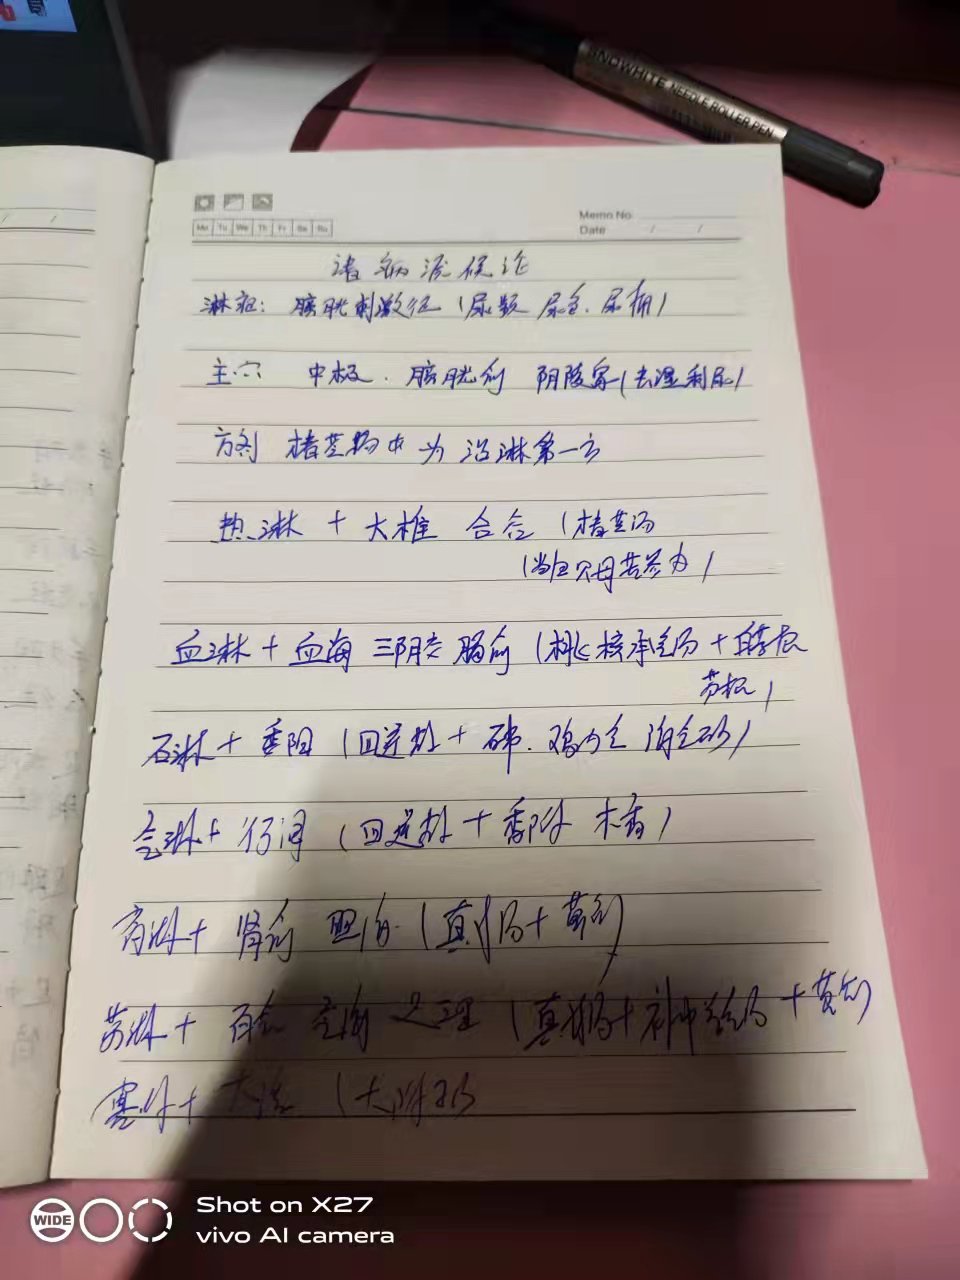 SNOWHITE NEEDLE ROLLER PEN
Mo Tu We Th Fr Sa Su
Memo No.
Date / /
诸病源候论
淋症: 膀胱刺激征 (尿频 尿急. 尿痛)
主穴 中极. 膀胱俞 阴陵泉 (去湿利尿)
方剂 猪苓汤 为 治淋第一方
热淋 + 大椎 合谷 (猪苓汤
(当归贝母苦参丸)
血淋 + 血海 三阴交 膈俞 (桃核承气汤 + 白茅根
石淋 + 委阳 (四逆散 + 鸡内金 海金砂)
气淋 + 行间 (四逆散 + 香附 木香)
膏淋 + 肾俞 照海 (真武汤 +
劳淋 + 百会 气海 足三里 (真武汤 + 补中益气汤 +
寒淋 +
WIDE
Shot on X27
vivo AI camera